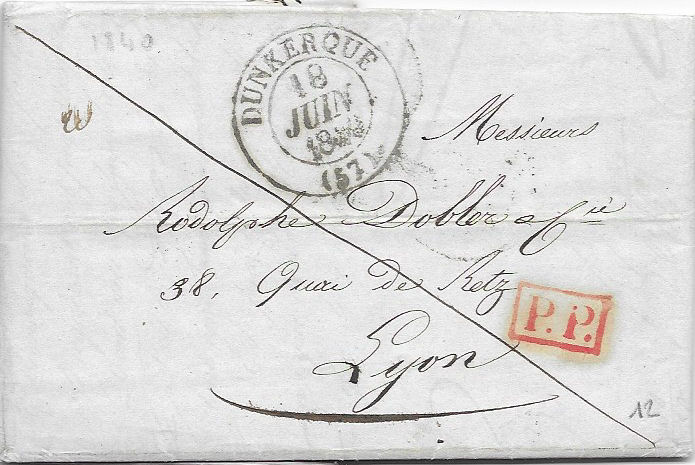 1840
DUNKERQUE
18
JUIN
(57)
Messieurs
Rodolphe Dobler & Cie
38, Quai de Retz
P.P.
Lyon
12